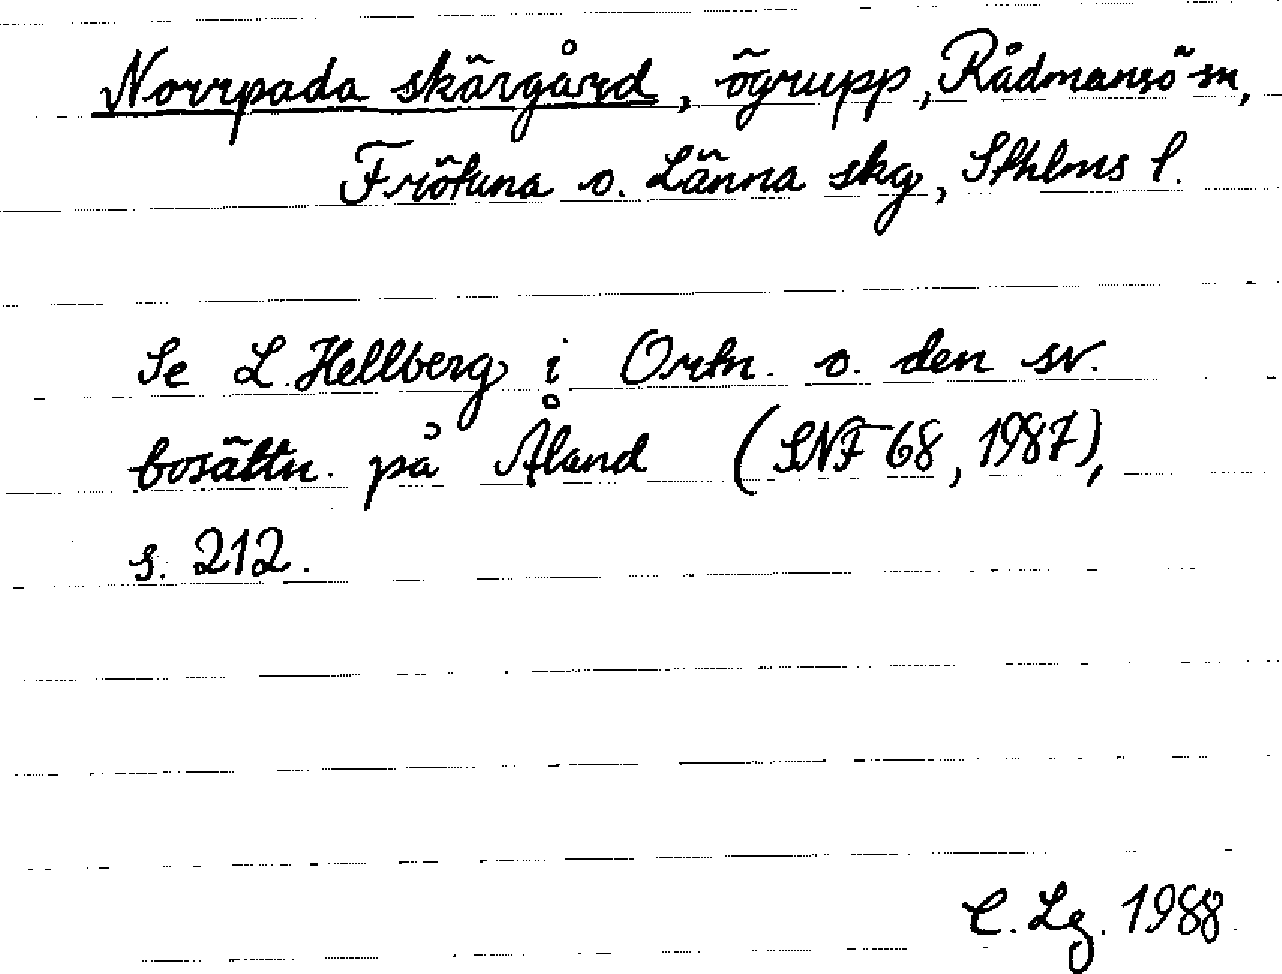 Norrpada skärgård, ögrupp, Rådmansö sn,
Frötuna o. Länna skg, Sthlms l.
Se L. Hellberg i Ortn. o. den sv.
bosättn. på Åland (SNF 68, 1987),
s. 212.
C. Lg. 1988